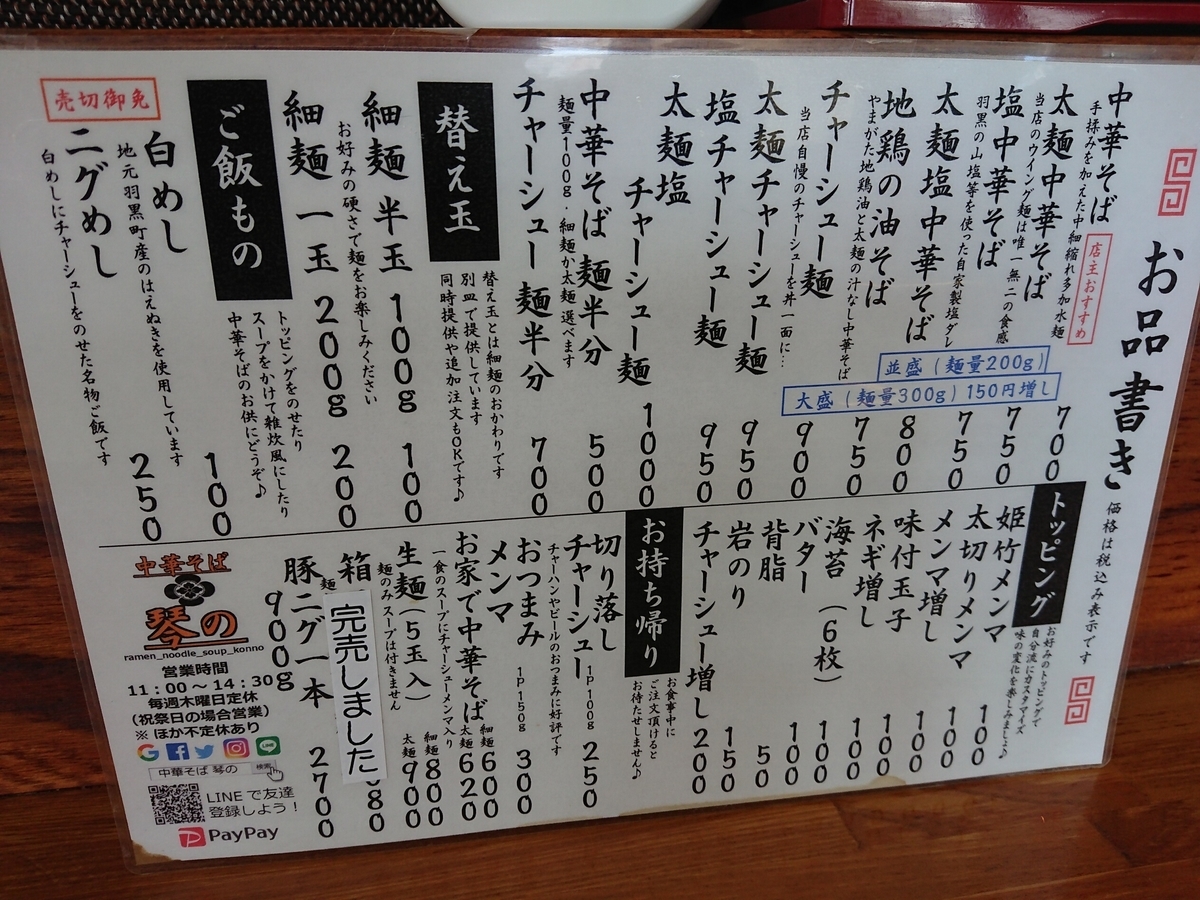 お品書き
価格は税込み表示です
中華そば
店主おすすめ
700
手揉みを加えた中細縮れ多加水麺
太麺中華そば
750
当店のウイング麺は唯一無二の食感
塩中華そば
750
羽黒の山塩等を使った自家製塩ダレ
太麺塩中華そば
800
地鶏の油そば
750
やまがた地鶏油と太麺の汁なし中華そば
チャーシュー麺
900
当店自慢のチャーシューを丼一面に…
太麺チャーシュー麺
950
塩チャーシュー麺
950
太麺塩
チャーシュー麺
1000
並盛(麺量200g)
大盛(麺量300g)150円増し
中華そば麺半分
500
麺量100g・細麺か太麺選べます
チャーシュー麺半分
700
替え玉
替え玉とは細麺のおかわりです
別皿で提供しています
同時提供や追加注文もOKです♪
細麺 半玉 100g
100
お好みの硬さで麺をお楽しみください
細麺 一玉 200g
200
ご飯もの
トッピングをのせたり
スープをかけて雑炊風にしたり
中華そばのお供にどうぞ♪
売切御免
白めし
100
地元羽黒町産のはえぬきを使用しています
ニグめし
250
白めしにチャーシューをのせた名物ご飯です
トッピング
お好みのトッピングで
自分流にカスタマイズ
味の変化を楽しみましょ♪
姫竹メンマ
100
太切りメンマ
100
メンマ増し
100
味付玉子
100
ネギ増し
100
海苔(6枚)
100
バター
100
背脂
50
岩のり
150
チャーシュー増し
200
お持ち帰り
お食事中に
ご注文頂けると
お待たせしません♪
切り落し
チャーシュー
1P100g
250
チャーハンやビールのおつまみに好評です
おつまみ
メンマ
1P150g
300
お家で中華そば
細麺 600
太麺 620
一食のスープにチャーシューメンマ入り
生麺(5玉入)
細麺 800
太麺 900
麺のみ スープは付きません
箱
80
完売しました
豚ニグ一本
900g
2700
中華そば
琴の
ramen_noodle_soup_konno
営業時間
11:00~14:30
毎週木曜日定休
(祝祭日の場合営業)
※ほか不定休あり
中華そば 琴の 検索
LINEで友達
登録しよう!
PayPay